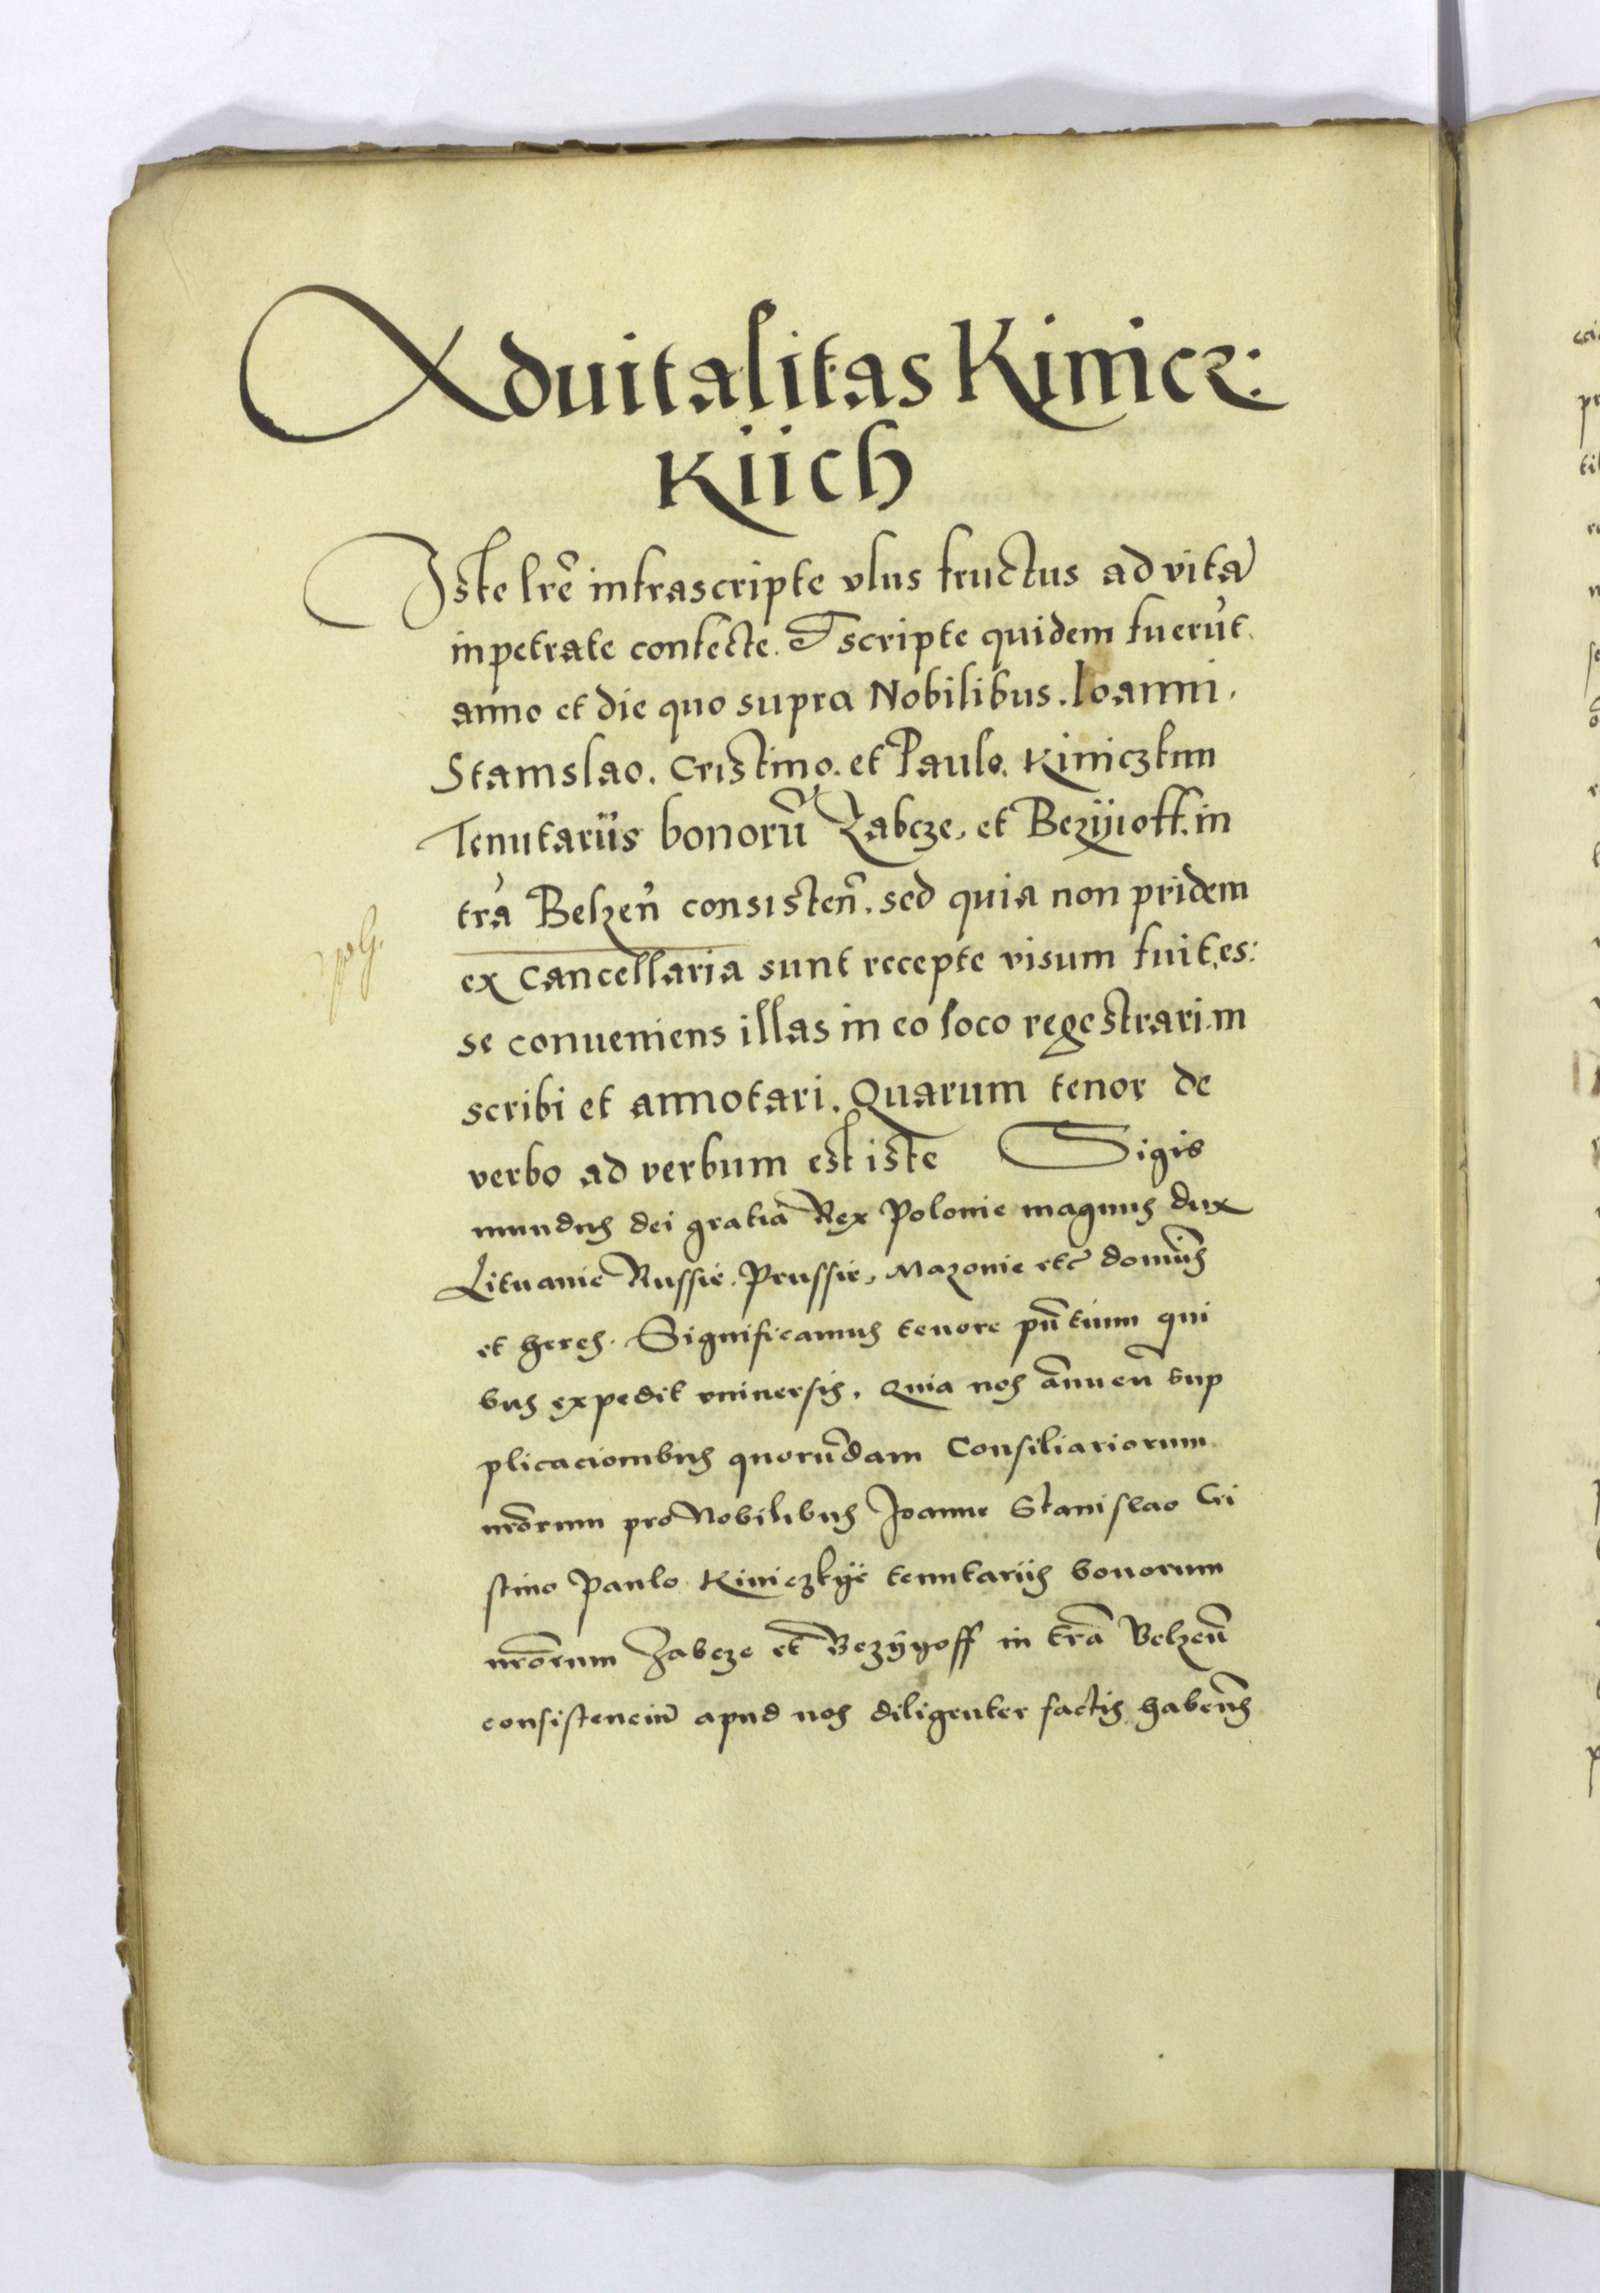 Aduitalitas Kinicz:
kiich
Iste lrẽ infrascripte vsus fructus ad vitã
inpetrate confecte. Scripte quidem fuerũt
anno et die quo supra Nobilibus. Ioanni,
Stanislao, Cristino. et Paulo. Kiniczkim
Tenutariis bonorũ Zabcze, et Bezyioff. in
trã Belzeñ consisteñ. sed quia non pridem
ex cancellaria sunt recepte visum fuit, es:
se conueniens illas in eo loco regestrari. in
scribi et annotari. Quarum tenor de
verbo ad verbum est iste Sigis
mundus dei gratia Rex Polonie magnus dux
Lituanie Russie. Prussie, Mazouie etc̃ domĩns
et heres. Significamus tenore pñtium qui
bus expedit vniuersis, Quia nos ãnnueñ sup
plicacionibus quorũdam Consiliariorum
nr̃orum pro Nobilibus Joanne Stanislao Cri
stino Paulo Kiniczkye tenutariis bonorum
nr̃orum Zabcze et Bezyyoff in trã Belzeñ
consistenciũ apud nos diligenter factis habeñs